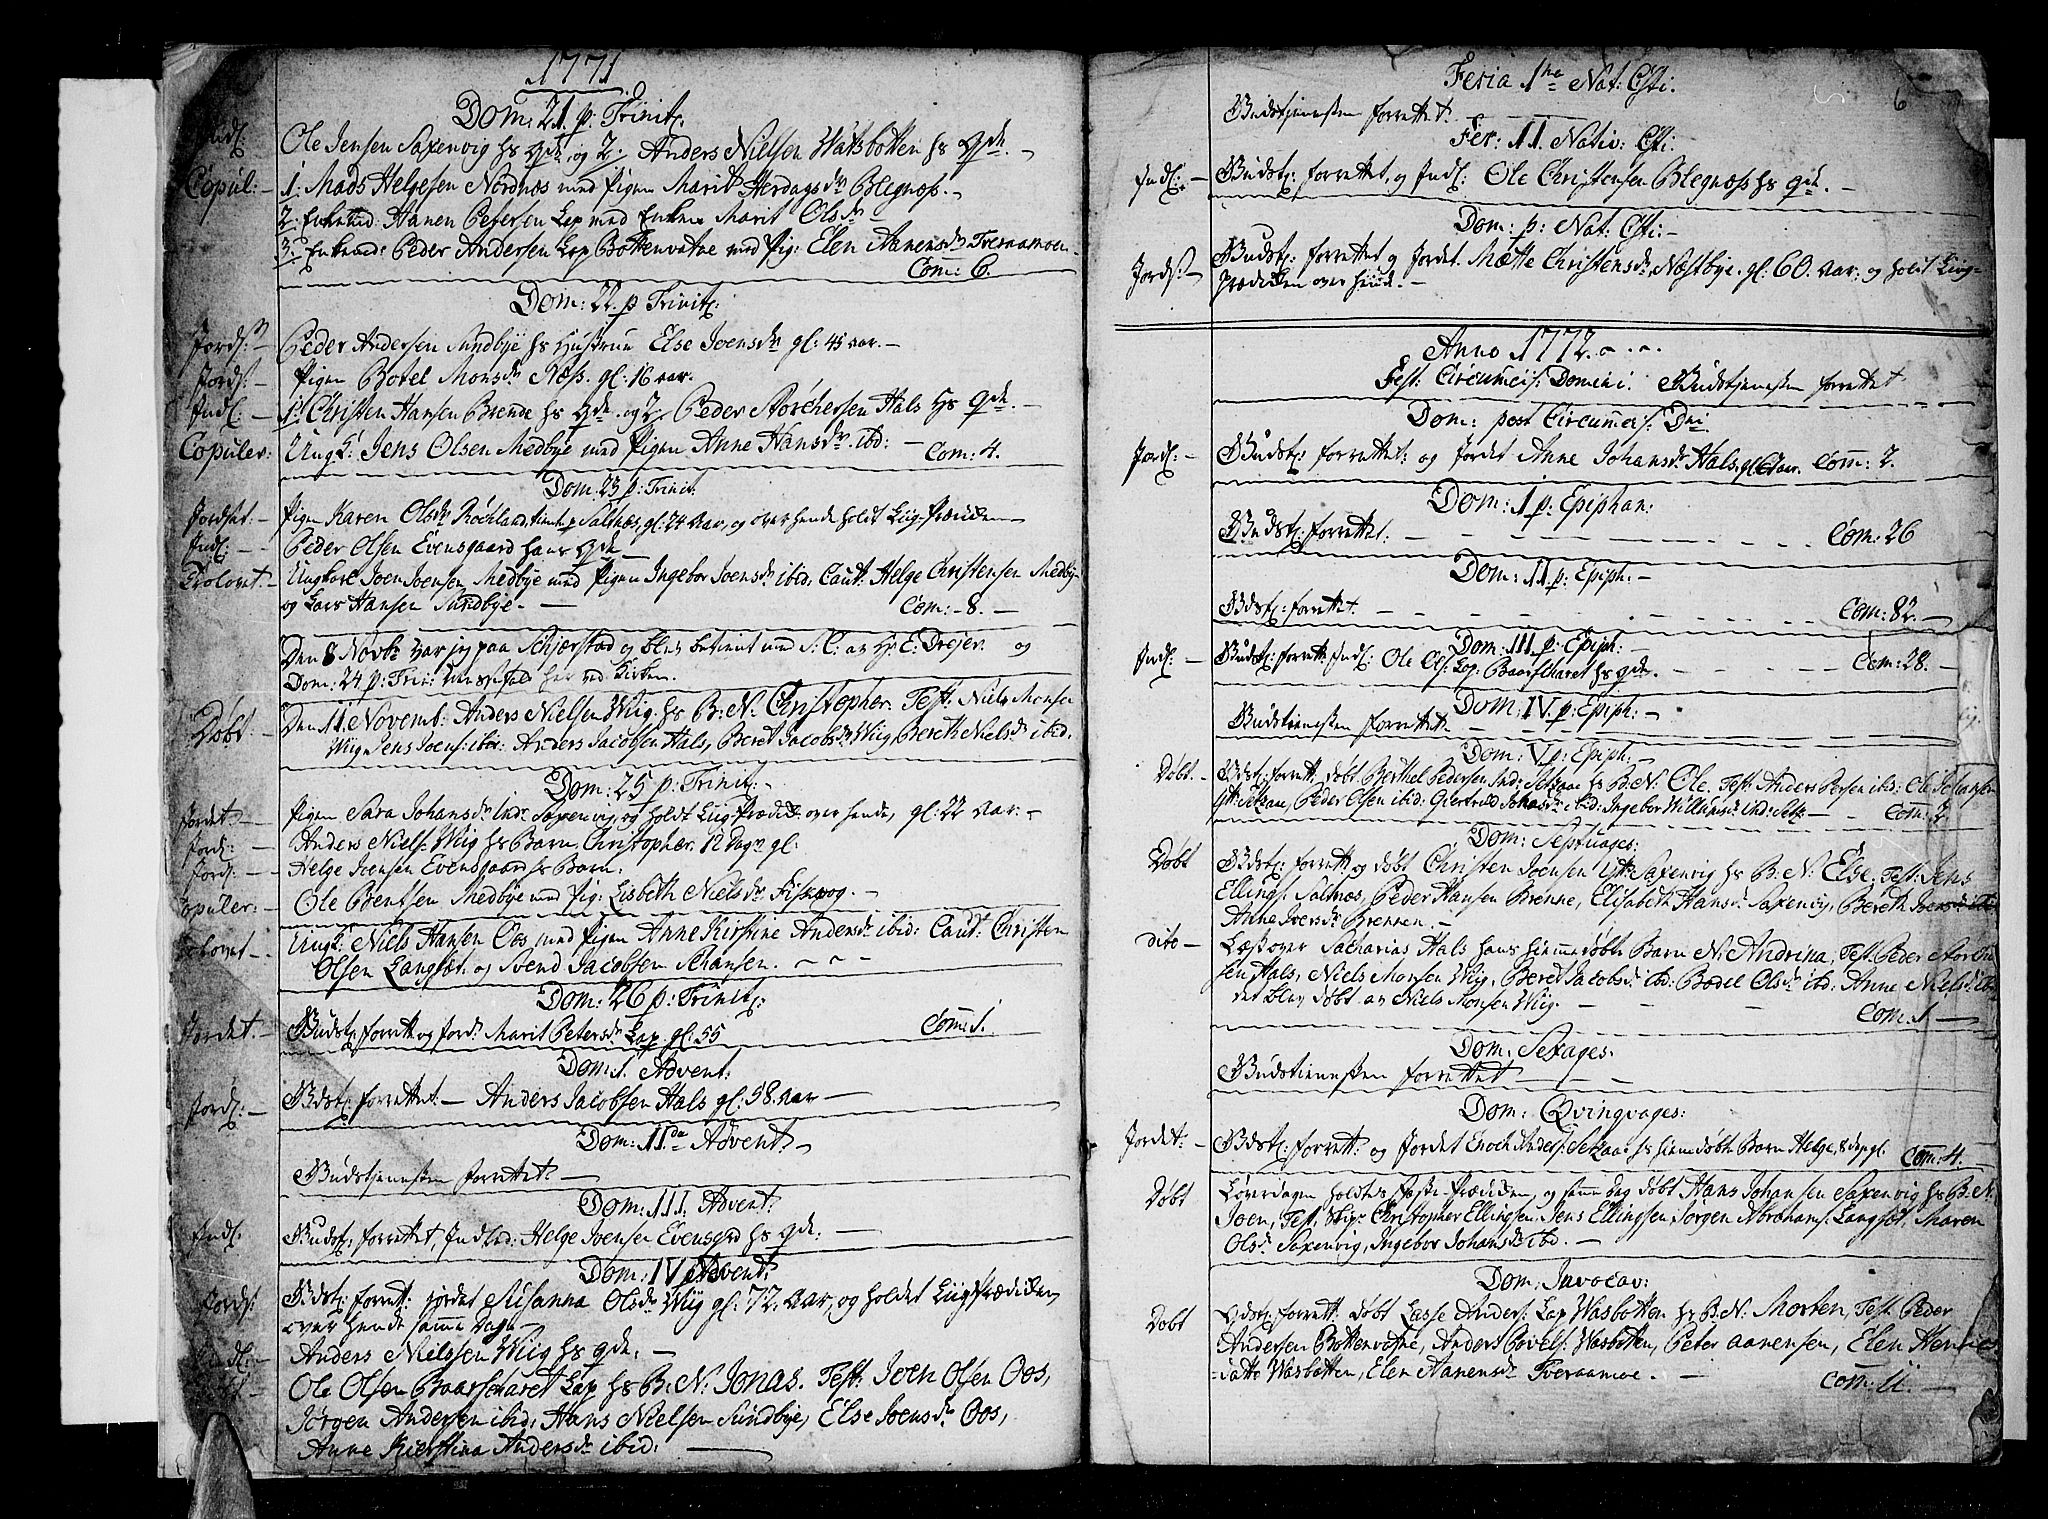 1771
Dom: 21. p: Trinit:
Indl. Ole Jensen Saxenvig hs qde, og 2, Anders Nielsen Watsbotten hs qde. –
Copul: – 1. Mads Helgesen Nordnæs med Pigen Marit Herdagsdr Blegnæss. –
2. Enkemd: Hanen Petersen Lap med Enken Marit Olsdr
3. Enkemd: Peder Andersen Lap Bottenvatne med Pig: Elen Aanensdr Tveraamoe.
Com: 6.
Dom: 22. p Trinit:
Jords: – Peder Andersen Sundbye hs Hustrue Else Joensdr gl: 45 aar. –
Jords: – Pigen Botel Monsdr Næss. gl: 16 aar.
Indl: – 1. Christen Hansen Brende hs qde. og 2, Peder Storchersen Hals hs qde. –
Copuler: Ungk: Jens Olsen Medbye med Pigen Anne Hansdr ibd: – Com: 4.
Dom. 23 p: Trinit:
Jordet. – Pigen Karen Olsdr Rochland, tient p Saltnæs, gl: 24 Aar, og over hende holdt Liig-Prædiken
Indl: – Peder Olsen Evensgaard hans qde –
Trolovet. – Ungkarl Joen Joensen Medbye med Pigen Ingebor Joensdr ibid, Caut: Helge Christensen Medby
og Lars Hansen Sundbye. – Com: 8. –
Den 8 Novbr var jeg paa Schjerstad og blev betient med S: C: av Hr: E: Drejer. og
Dom: 24 p: Trin: her ved Kirken.
Døbt. – Den 11. Novemb: Anders Nielsen Wiig. hs B: N: Christopher. Test: Niels Monsen
Wiig, Jens Joens: ibid: Anders Jacobsen Hals, Beret Jacobsdr Wiig, Bereth Nielsdr ibid.
Dom: 25 p: Trinit: –
Jordet – Pigen Sara Johansdr Indr Saxenvig, og holdt Liig Prædik over hende, gl: 22 Aar. –
Jords: – Anders Niels: Wiig hs Barn, Christopher. 12 Dagr gl:
Jords: – Helge Joensen Evensgaard hs Barn.
Copuler: – Ole Bentsen Medbye med Pig: Lisbeth Nielsdr Fiskvog. –
Trolovet – Ungk: Niels Hansen Oos med Pigen Anne Kirstine Andersdr ibid: Caut: Christen
Olsen Langset. og Svend Jacobsen Schansen. – – –
Dom: 26 p: Trinit:
Jordet. – Gudst: forrett og Jord: Marit Petersdr Lap gl: 55 Com: 1.
Dom: 1. Advent:
Jord: – Gdst: forrettet. – Anders Jacobsen Hals gl: 58. Aar –
Dom: IIda Advent: –
Gudstjenesten forrettet. –
Dom: III. Advent:
Indl. Gudst: forrettet, Indled: Helge Joensen Evensgrd hs qde. –
Dom: IV Advent:
Jords: Gdst: forrett: jordet Susanna Olsdr Wiig gl: 72. Aar, og holdet Liig Prædiken
over hende samme Dag. –
Indl: – Anders Nielssen Wiig hs qde. –
Ole Olsen Baarscharet Lap hs B: N: Jonas. Test: Joen Olsen Oos,
Jørgen Andersen ibid, Hans Nielsen Sundbye, Else Joensdr Oos,
Anne Kierstina Andersdr ibid: –
6
Feria 1ma Nat: Chti:
Gudstjenesten forrettet.
Fer: II. Nativ: Chti:
Indl: – Gudst: forrettet, og Indl: Ole Christensen Blegnæss hs qde. –
Dom: p: Nat: Chti: –
Jords: – Gudst: forrettet og Jordet. Mætte Christensdr Næstbye. gl: 60 Aar. og holdt Liig-
Prædiken over hende. –
Anno 1772. – . –
Fest: Circumcis: Domini. Gudstjenesten forrettet
Dom: post Circumcis: Dni
Jord: – Gudst: forrettet: og Jordet Anne Johansdr Hals, gl: Aar. Com: 2.
Dom: I p: Epiphan:
Gudst: forrettet. – Com: 26
Dom: II p: Epiph: –
Gdst: forrettet. – Com: 82. –
Dom: III. p: Epiph: –
Indl: – Gudst: forrett, Indl: Ole Ols: Lap. Baarscharet hs qde. – Com: 28. –
Dom: IV. p: Epiph: –
Gudstienesten forrettet –
Dom: V p: Epiph: –
Døbt. – Gdst: forrett, døbt Berthel Pedersen Ind: Setzaae hs B: N: Ole. Test: Anders Persen ibid: Ole Johansen
Ytt: Setzaae, Peder Olsen ibid: Giertrud Johansdr ibid: Ingebor Willumsdr Ind: Setz: – Com: 2
Dom: Septuages:
Døbt Gdst: forrett og døbt Christen Joensen Ytt: Saxenvig hs B: N: Else. Test: Jens
Ellings: Saltnæs, Peder Hansen Brenne, Elisabeth Hansdr Saxenvig, Bereth Joensdr ibd
Anne Iversdr Brennen. –
dito – Læst over Sacharias Hals hans hiemmedøbte Barn N: Andrina, Test: Peder Storcher
sen Hals, Niels Monsen Wiig, Beret Jacobsdr ibd: Bodel Olsdr ibd: Anne Nielsdr ibd
det blev døbt av Niels Monsen Wiig. – Com: 1 –
Dom: Sexages:
Gudstienesten forrettet –
Dom: Qvinqvages:
Jordet: – Gdst: forrett: og Jordet Enoch Anders: Setzaae hs hiemdøbte Barn Helge, 8 dage gl. Com: 4.
Døbt Løverdagen holdtes Faste-Prædiken, og samme Dag døbt Hans Johansen Saxenvig hs B: N:
Joen, Test, Skip: Christopher Ellingsen, Jens Ellingsen, Jørgen Abrahams: Langset, Maren
Olsdr Saxenvig, Ingebor Johansdr ibd. –
Dom: Invocav:
Døbt Gdst: forrett: Døbt Lasse Anders: Lap Wasbotten hs B: N: Morten, Test: Peder
Andersen Bottenvatne, Anders Povels: Wasbotten, Peter Aanensen, Elen Henric
datter Wasbotten, Elen Aanensdr Tveraamoe. – Com: 11. –